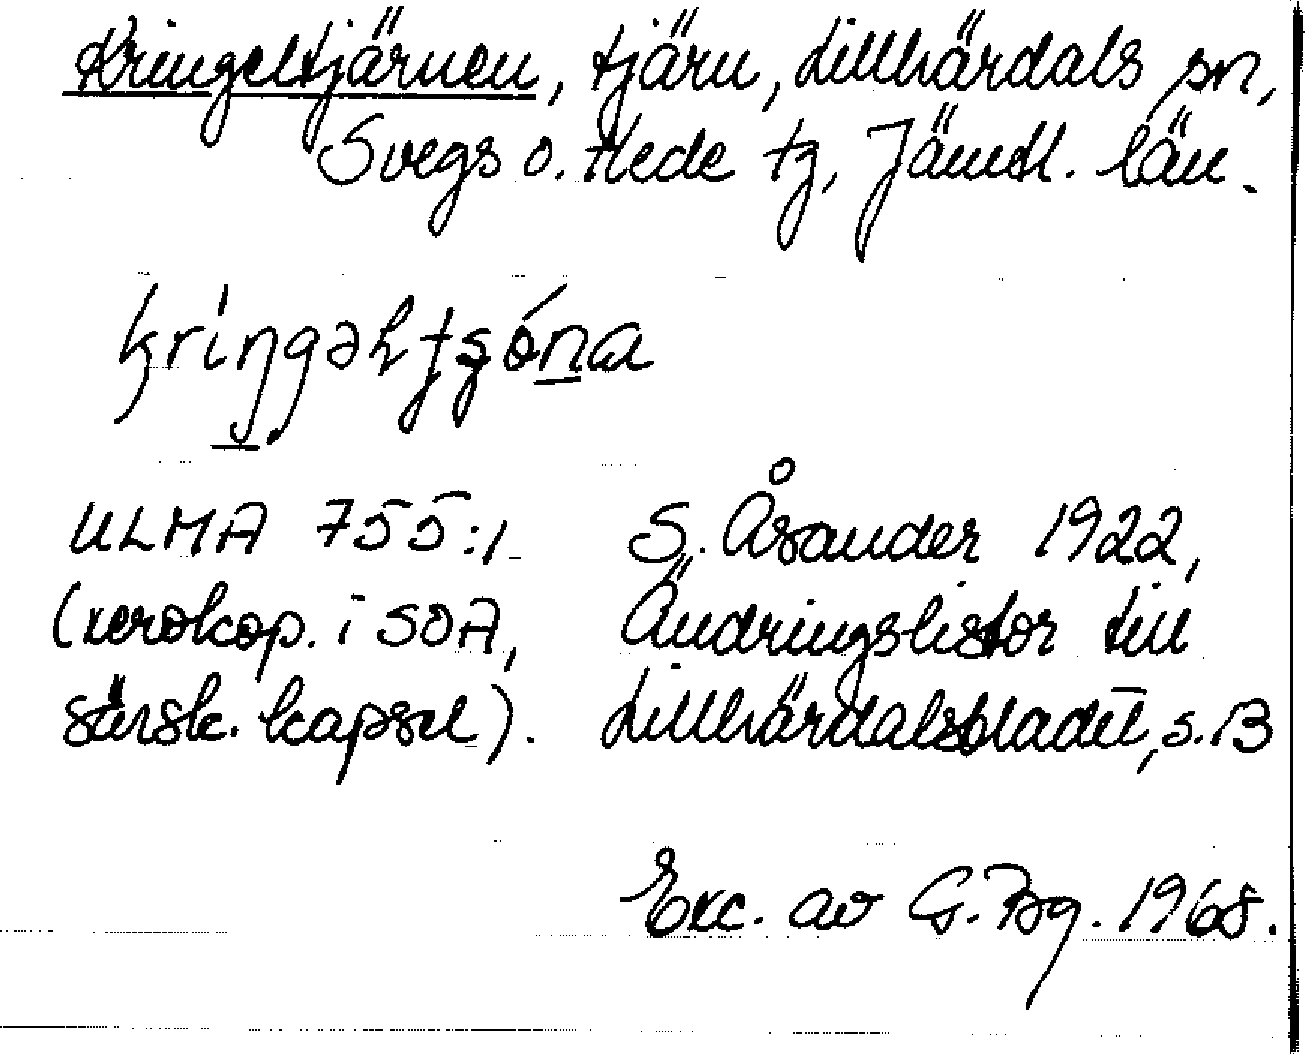 Kringeltjärnen, tjärn, Lillhärdals sn,
Svegs o. Hede tg, Jämtl. län.
ULMA 755:1 S. Åsander 1922,
(xerokop. i SOA, Ändringslistor till
särsk. kapsel). Lillhärdalsbladet, s. 13
Exc. av G. Bg. 1968.